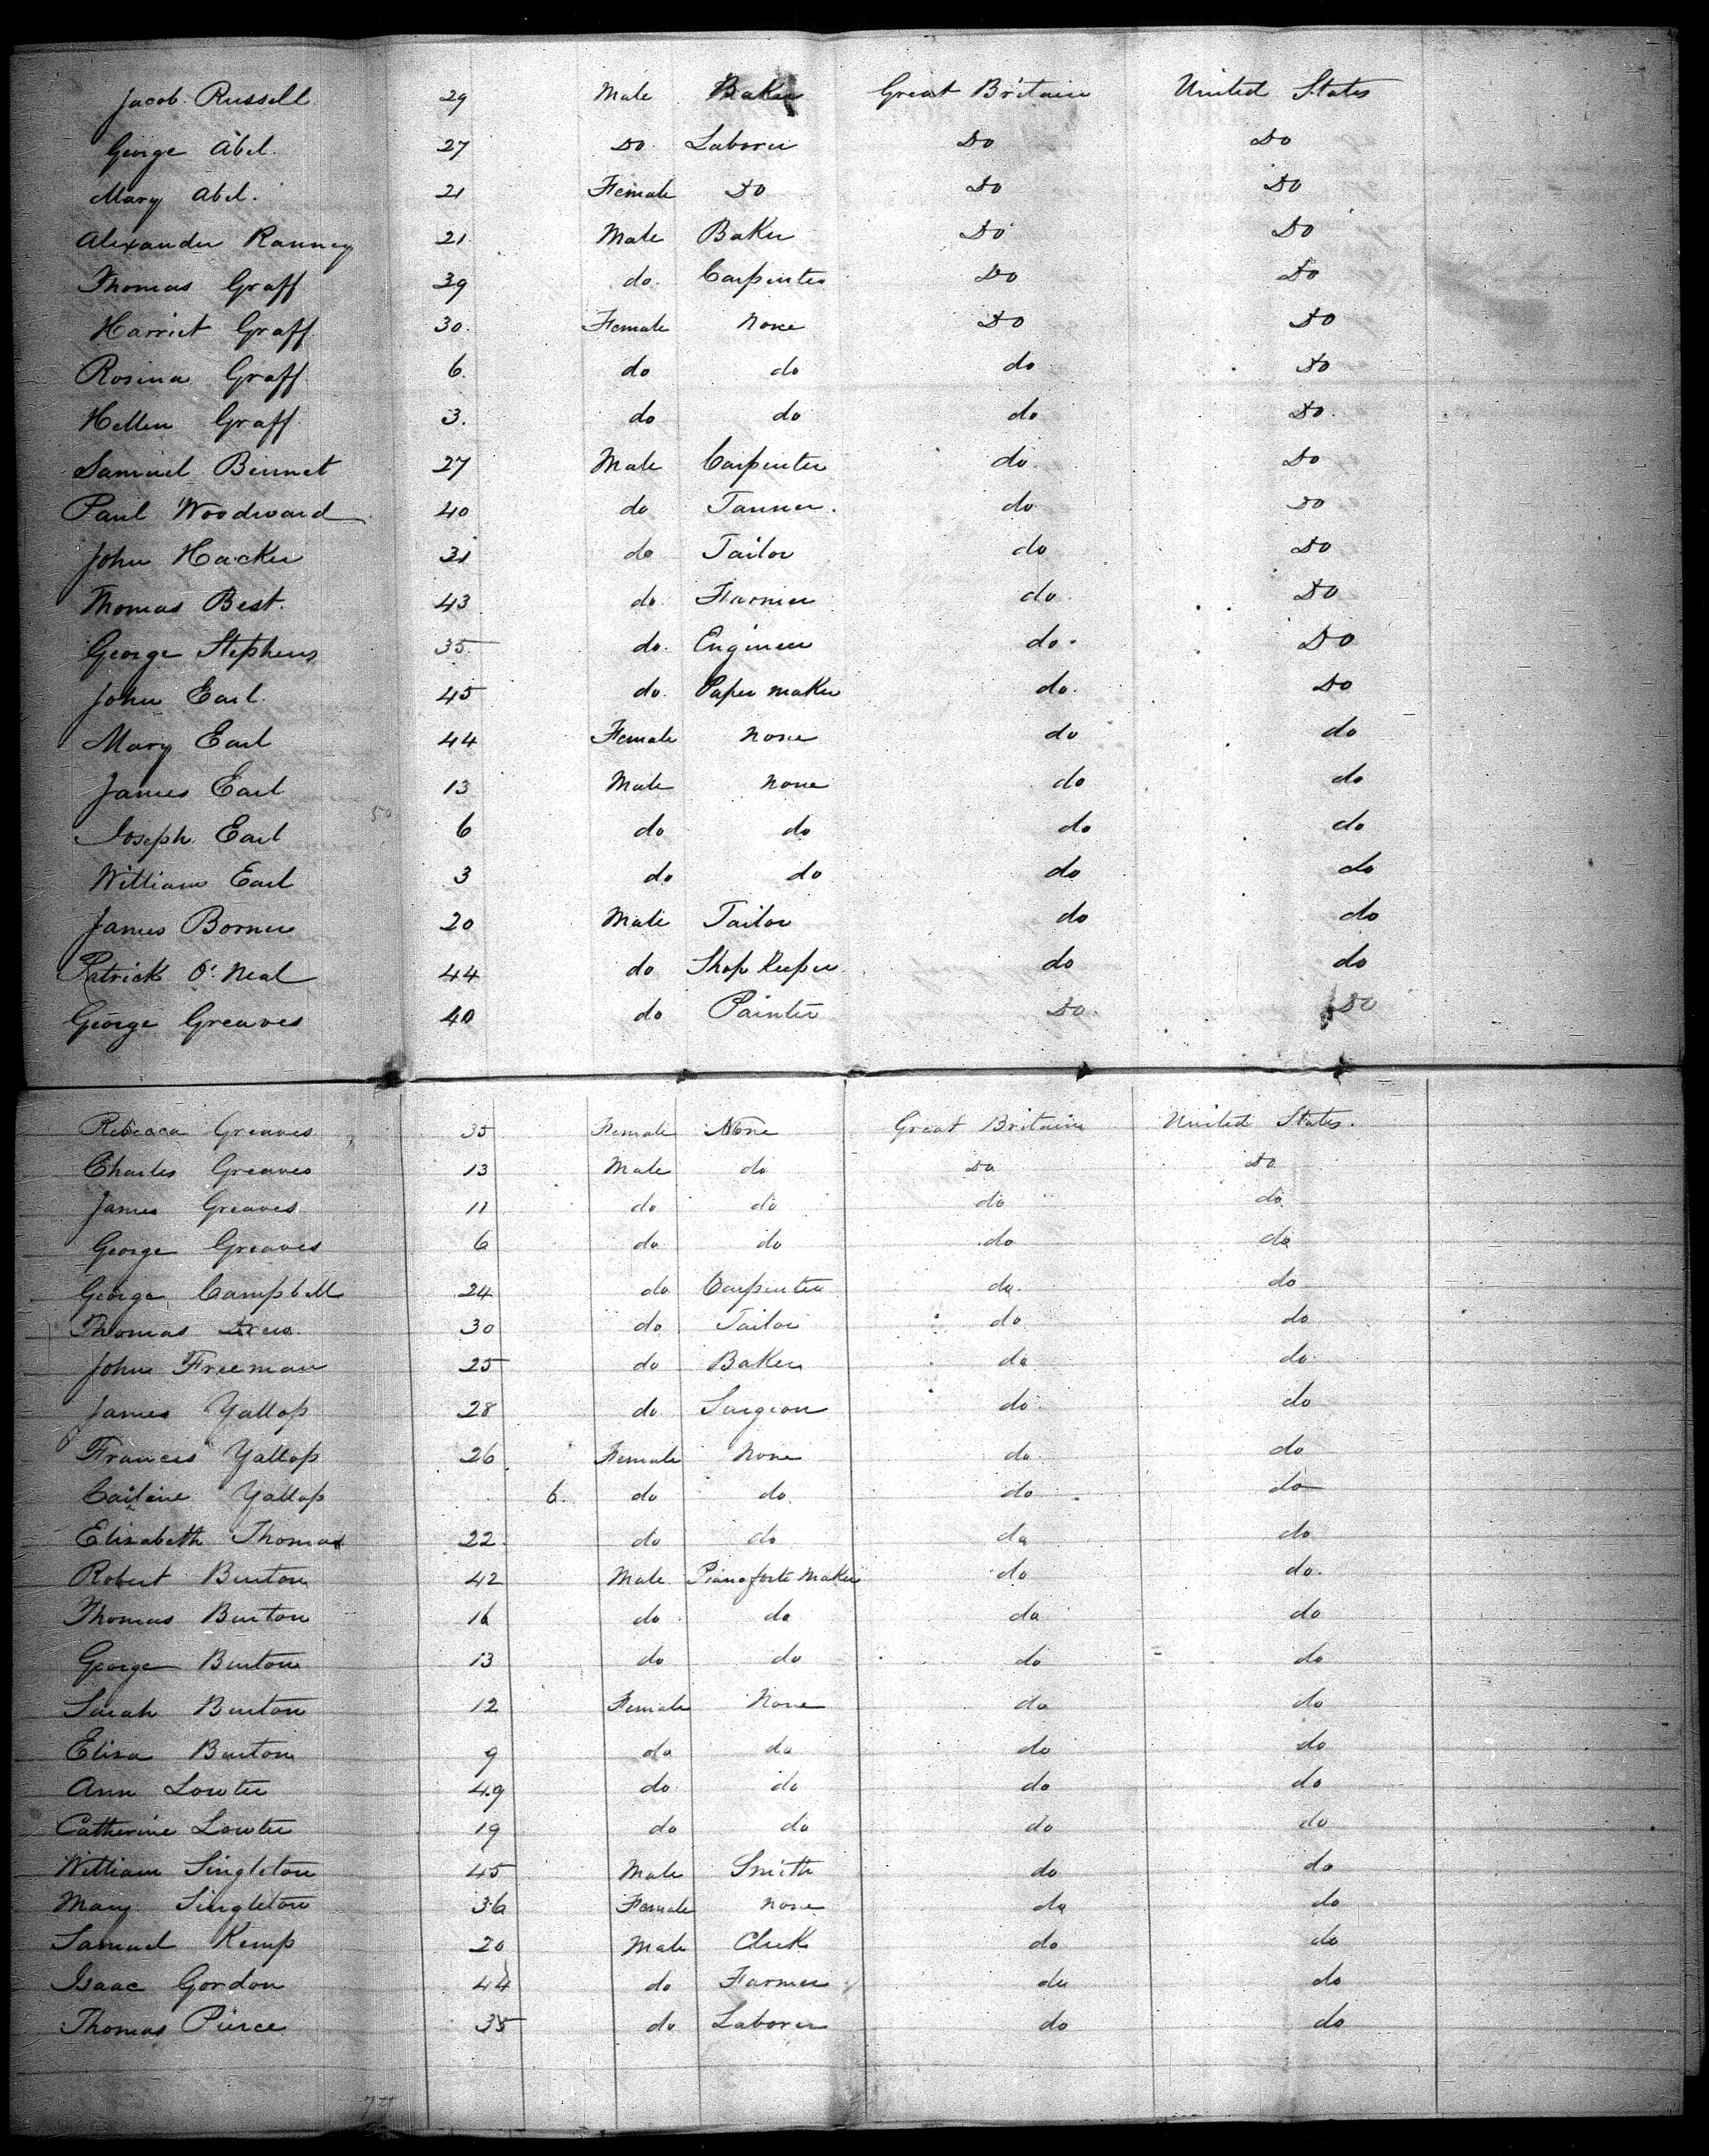 Jacob Russell 29 Male Baker Great Britain United States
George Abel 27 Do Laborer Do Do
Mary Abel 21 Female Do Do Do
Alexander Ranney 21 Male Baker Do Do
Thomas Graff 39 do Carpenter Do Do
Harriet Graff 30 Female None Do Do
Rosina Graff 6 do do do Do
Hellen Graff 3 do do do Do
Samuel Bennet 27 Male Carpenter do Do
Paul Woodward 40 do Tanner do Do
John Hacker 31 do Tailor do Do
Thomas Best 43 do Farmer do Do
George Stephens 35 do Engineer do Do
John Earl 45 do Paper maker do Do
Mary Earl 44 Female None do do
James Earl 13 Male None do do
50
Joseph Earl 6 do do do do
William Earl 3 do do do do
James Borner 20 Male Tailor do do
Patrick O'Neal 44 do Shop Keeper do do
George Greaves 40 do Painter Do Do
Rebecca Greaves 35 Female None Great Britain United States
Charles Greaves 13 Male do Do Do
James Greaves 11 do do do do
George Greaves 6 do do do do
George Campbell 24 do Carpenter do do
Thomas Drew 30 do Tailor do do
John Freeman 25 do Baker do do
James Yallop 28 do Surgeon do do
Frances Yallop 26 Female None do do
Yallop 6 do do do do
Elizabeth Thomas 22 do do do do
Robert Burton 42 Male Piano forte Maker do do
Thomas Burton 16 do do do do
George Burton 13 do do do do
Sarah Burton 12 Female None do do
Eliza Burton 9 do do do do
Ann Lowter 49 do do do do
Catherine Lowter 19 do do do do
William Singleton 45 Male Smith do do
Mary Singleton 36 Female None do do
Samuel Kemp 20 Male Clerk do do
Isaac Gordon 44 do Farmer do do
Thomas Pierce 35 do Laborer do do